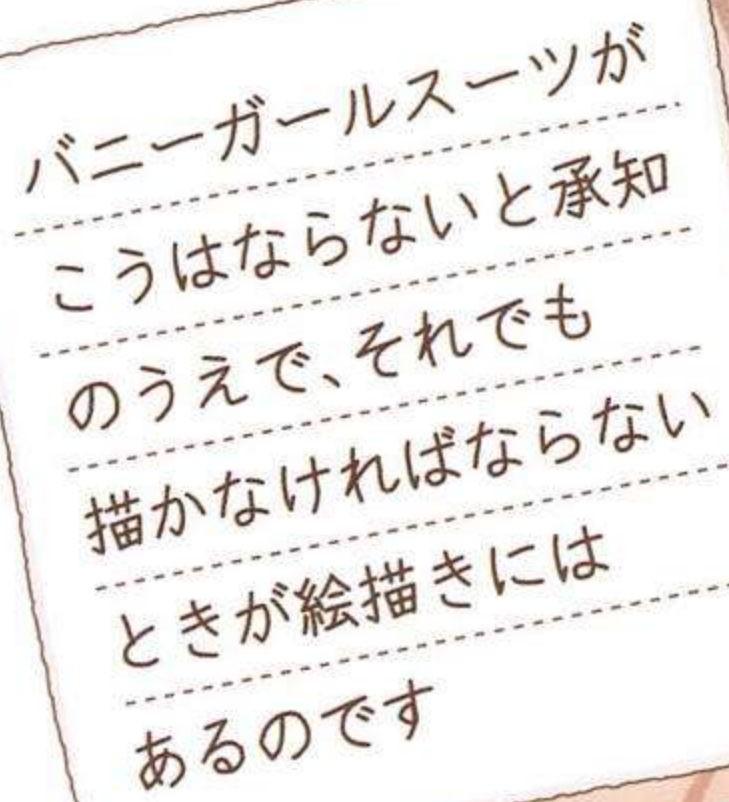 バニーガールスーツが
こうはならないと承知
のうえで、それでも
描かなければならない
ときが絵描きには
あるのです